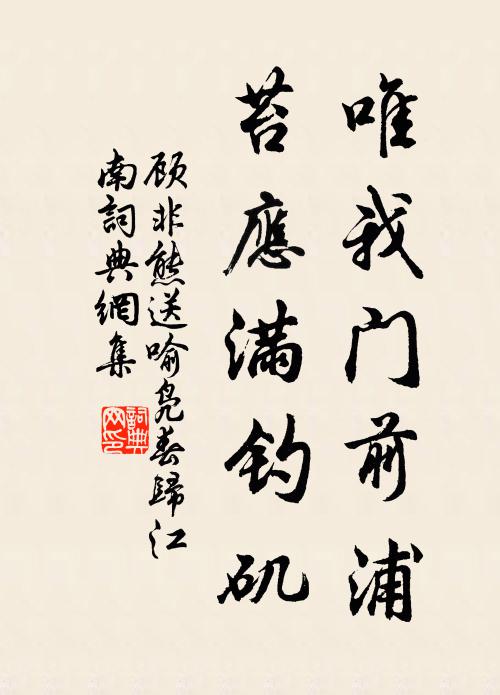 唯我门前浦
苔應满钓矶
顾非熊送喻凫春歸江
南詞典網集
詞典
网印